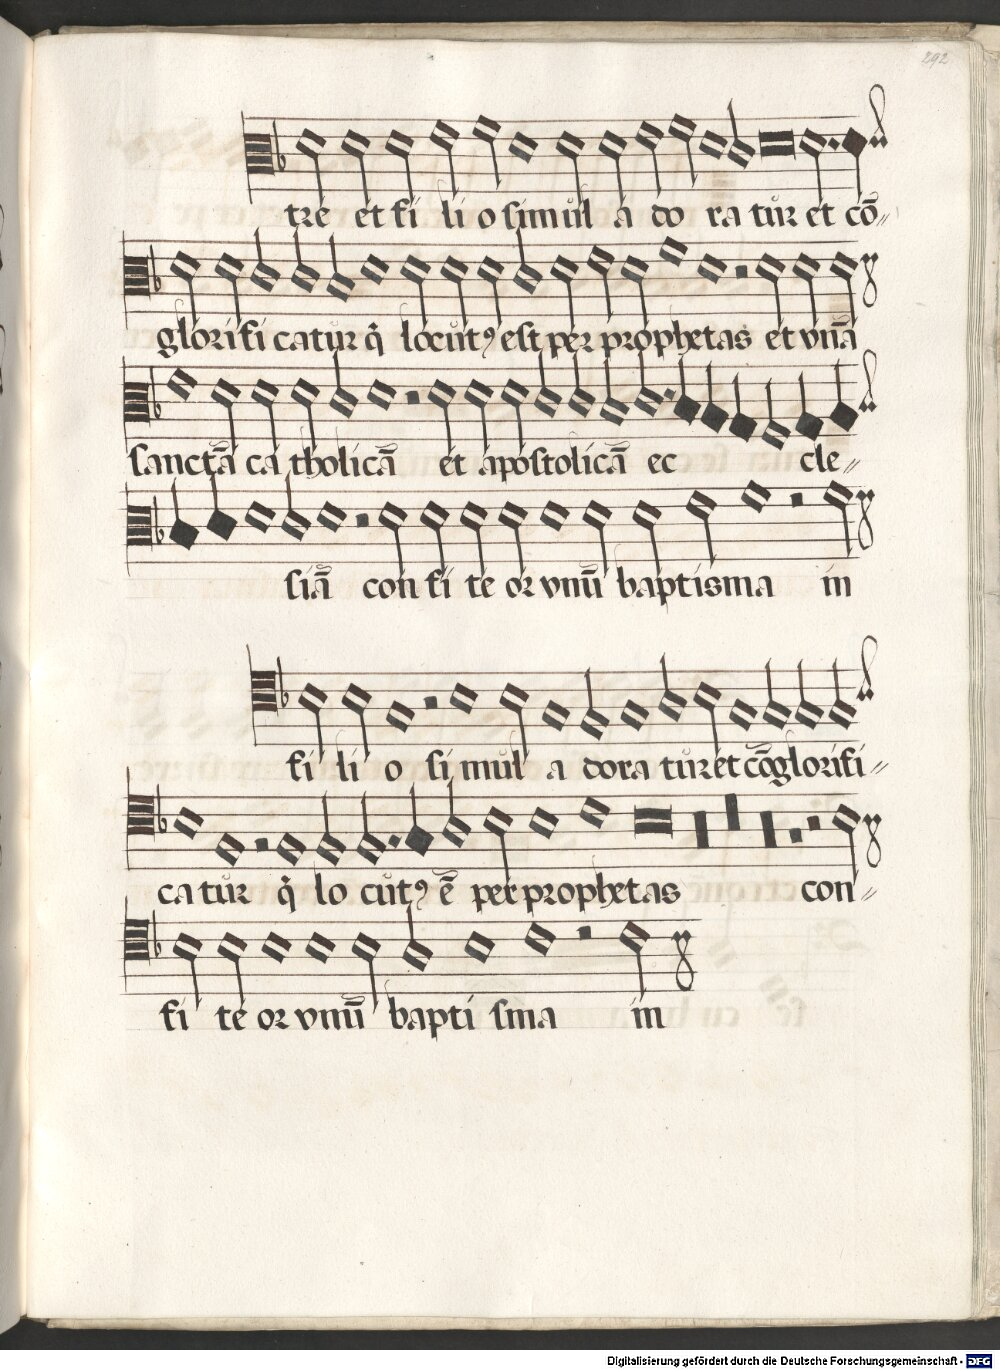 292
tre et fi li o simul a do ra tur et cō〃
glorifi catur q̄ locutꝰ est per prophetas et vnā
sanctā ca tholicā et apostolicā ec cle〃
siā con fi te or vnū baptisma in
fi li o si mul a dora tur et cōglorifi〃
ca tur q̄ lo cutꝰ ē per prophetas con〃
fi te or vnū bapti sma in
Digitalisierung gefördert durch die Deutsche Forschungsgemeinschaft - DFG